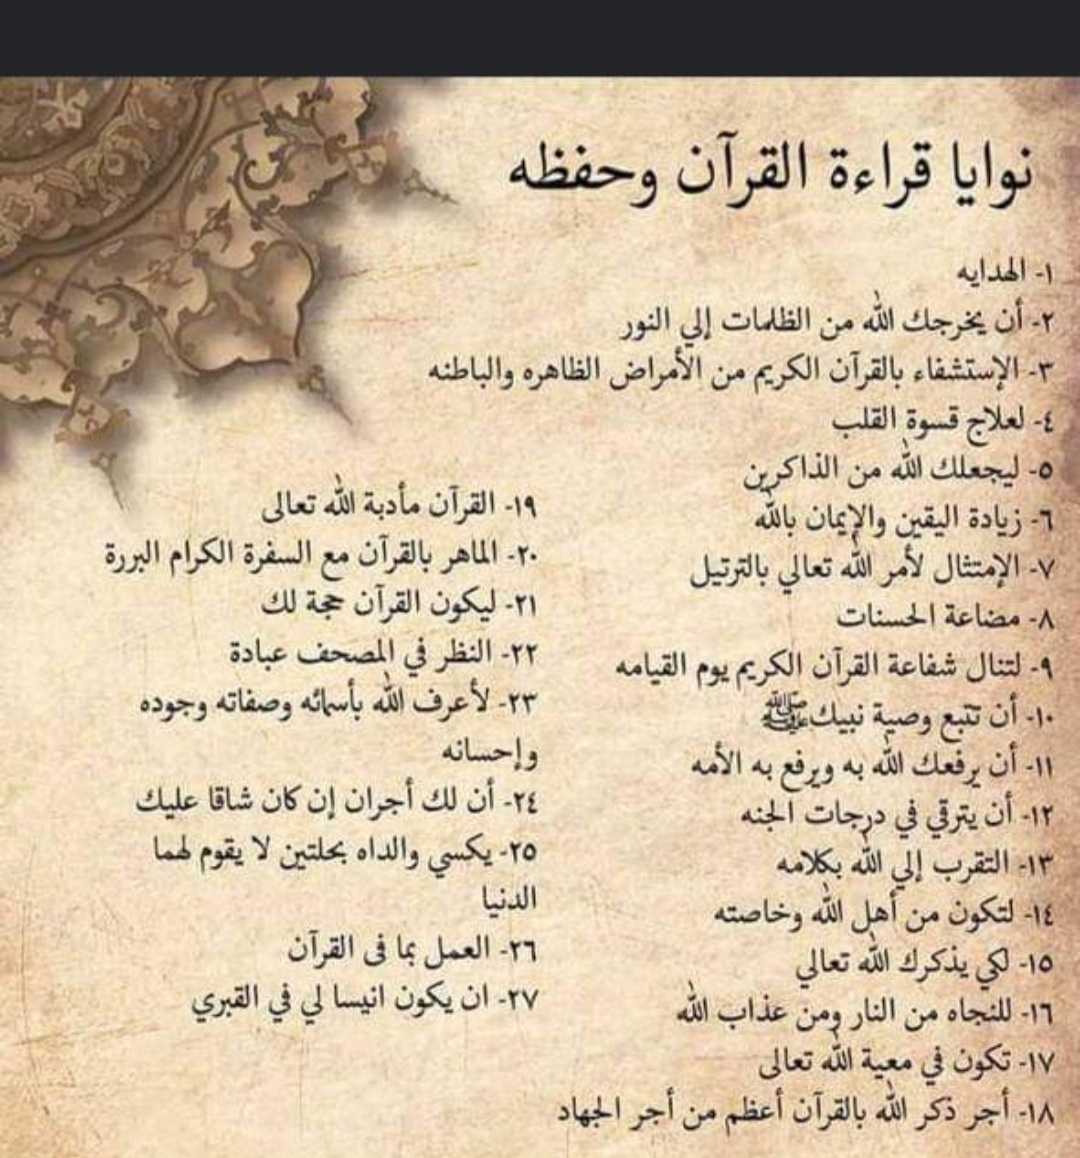 نوايا قراءة القرآن وحفظه
١- الهدايه
٢- أن يخرجك الله من الظلمات إلي النور
٣- الإستشفاء بالقرآن الكريم من الأمراض الظاهره والباطنه
٤- لعلاج قسوة القلب
٥- ليجعلك الله من الذاكرين
٦- زيادة اليقين والإيمان بالله
٧- الإمتثال لأمر الله تعالي بالترتيل
٨- مضاعة الحسنات
٩- لتنال شفاعة القرآن الكريم يوم القيامه
١٠- أن تتبع وصية نبيك ﷺ
١١- أن يرفعك الله به ويرفع به الأمه
١٢- أن يترقي في درجات الجنه
١٣- التقرب إلي الله بكلامه
١٤- لتكون من أهل الله وخاصته
١٥- لكي يذكرك الله تعالي
١٦- للنجاه من النار ومن عذاب الله
١٧- تكون في معية الله تعالى
١٨- أجر ذكر الله بالقرآن أعظم من أجر الجهاد
١٩- القرآن مأدبة الله تعالى
٢٠- الماهر بالقرآن مع السفرة الكرام البررة
٢١- ليكون القرآن حجة لك
٢٢- النظر في المصحف عبادة
٢٣- لأعرف الله بأسمائه وصفاته وجوده
وإحسانه
٢٤- أن لك أجران إن كان شاقا عليك
٢٥- يكسي والداه بحلتين لا يقوم لهما
الدنيا
٢٦- العمل بما فى القرآن
٢٧- ان يكون انيسا لي في القبري